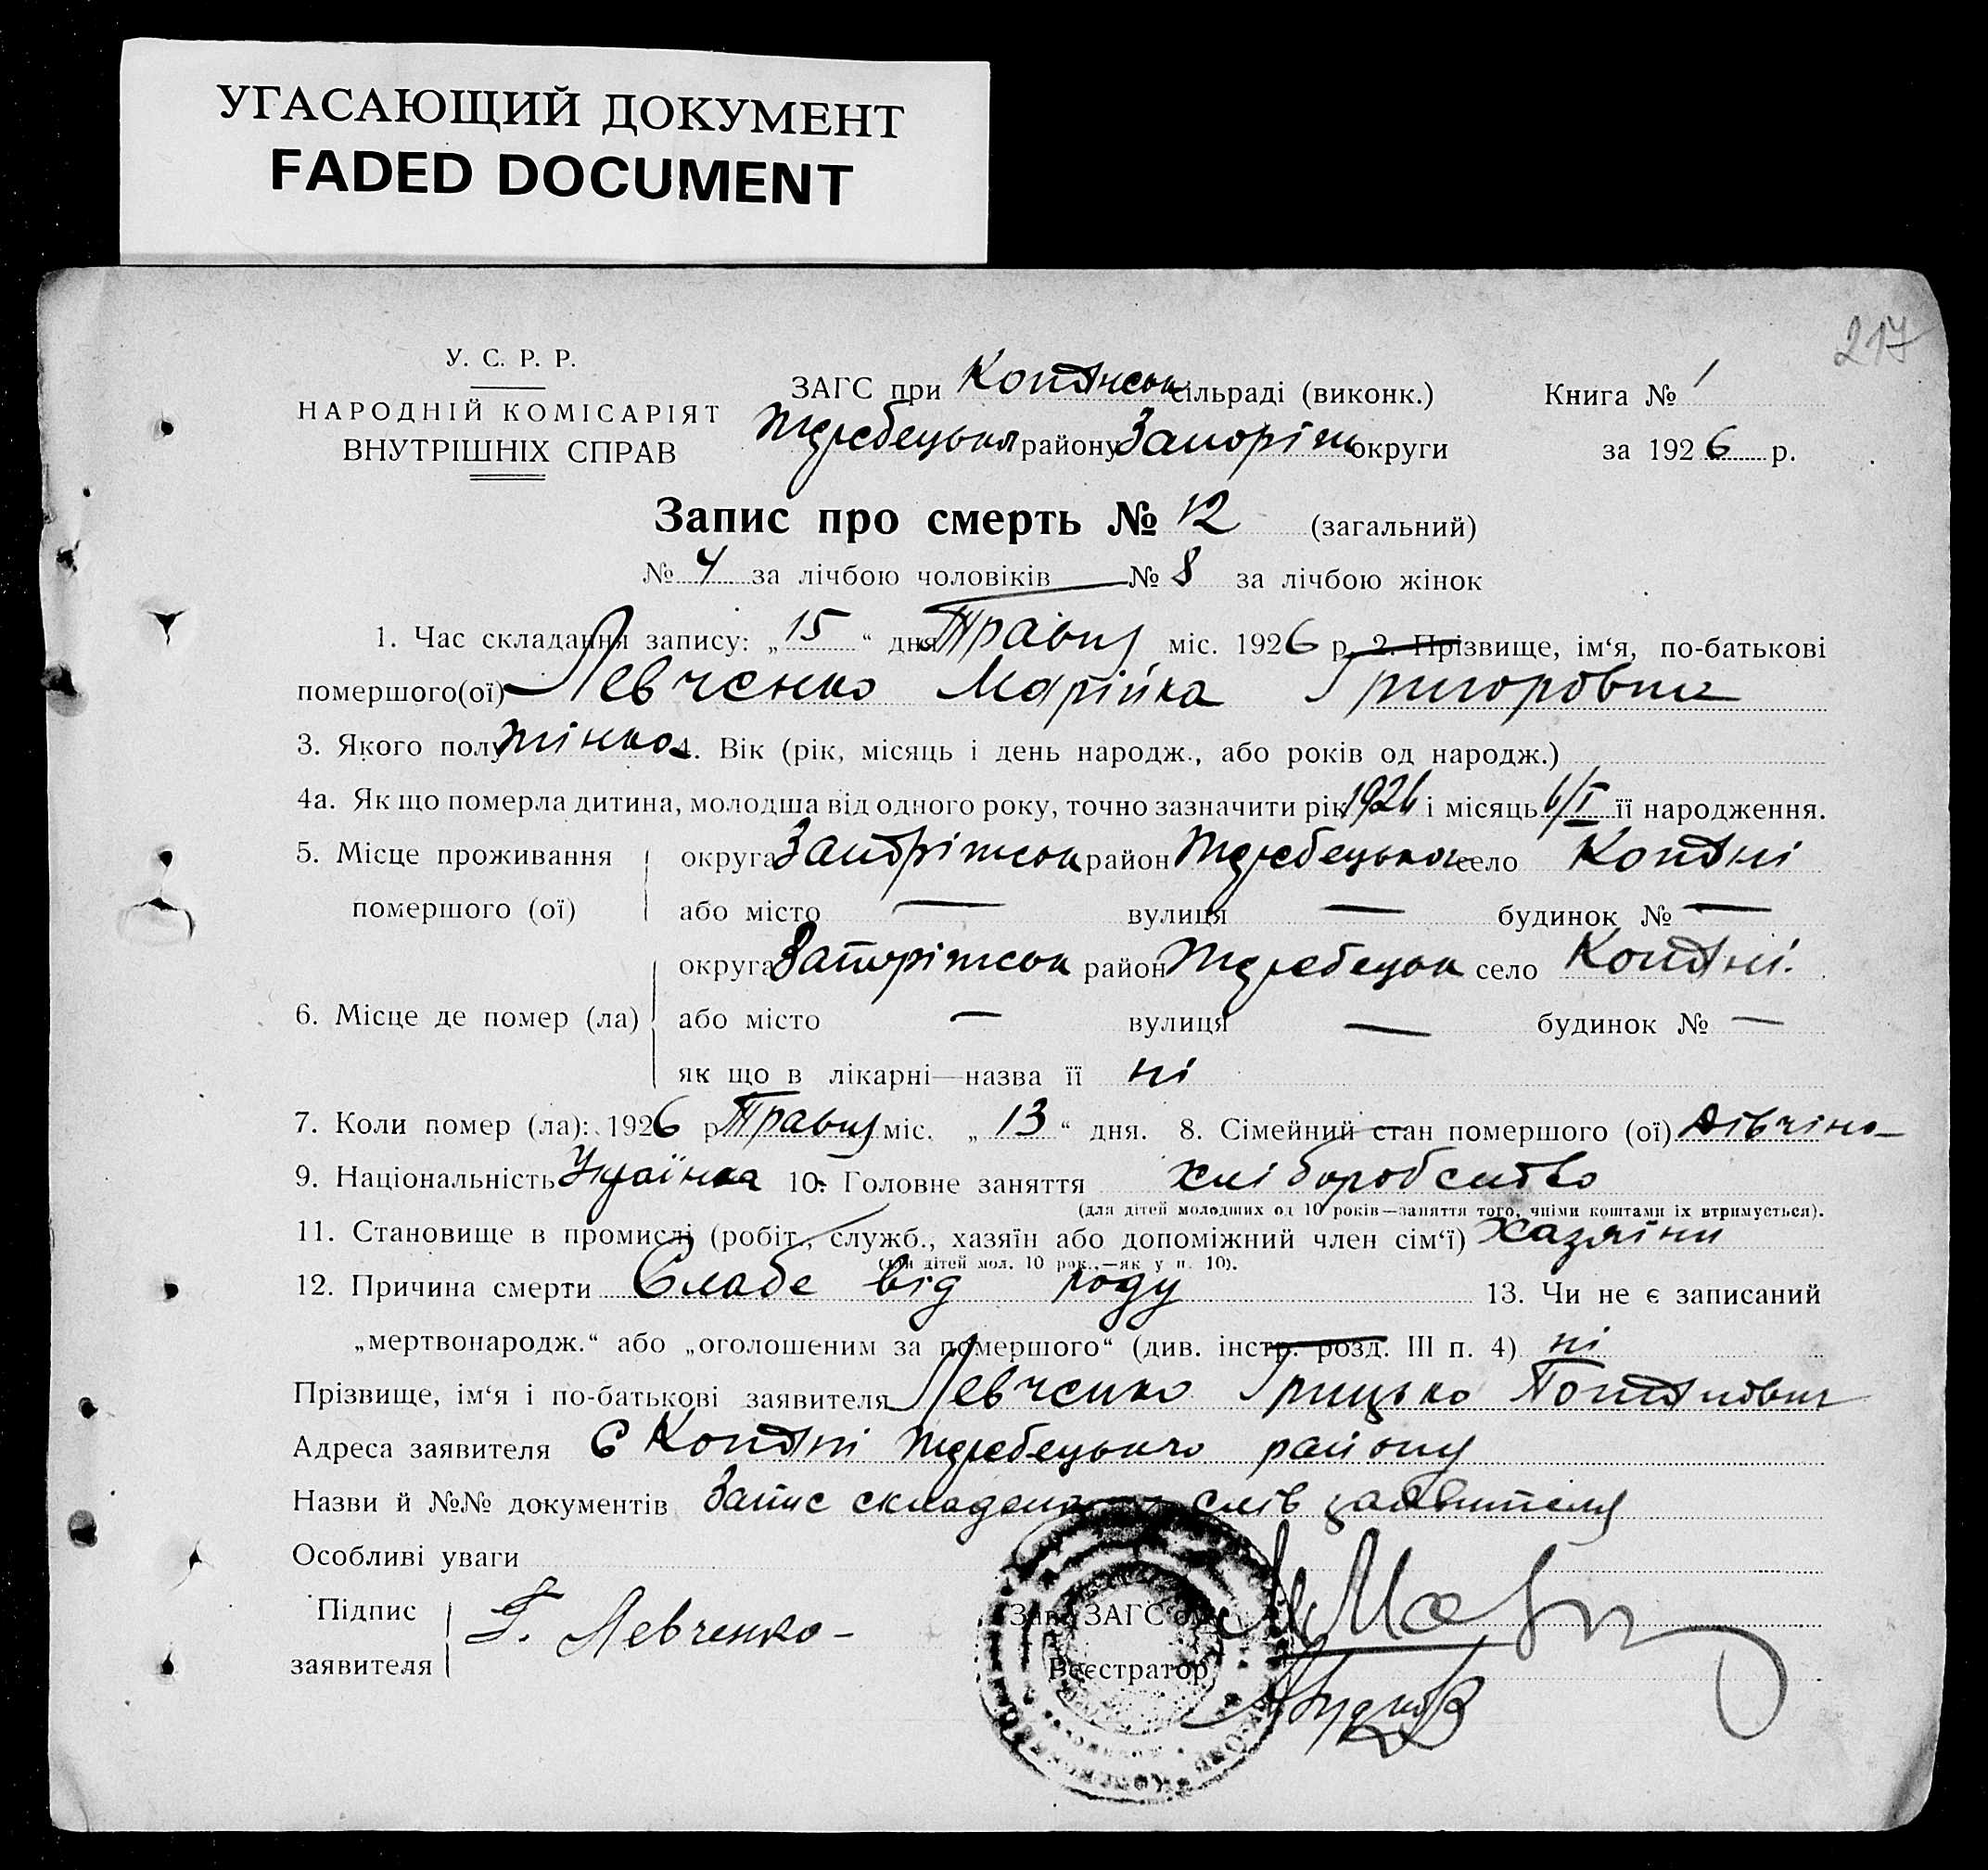 УГАСАЮЩИЙ ДОКУМЕНТ
FADED DOCUMENT
217
У. С. Р. Р.
НАРОДНІЙ КОМІСАРІЯТ
ВНУТРІШНІХ СПРАВ
ЗАГС при Копанськ сільраді (виконк.)
Жеребецьк району Запоріж округи
Книга № 1
за 1926 р.
Запис про смерть № 12 (загальний)
№ 4 за лічбою чоловіків — № 8 за лічбою жінок
1. Час складання запису: „15“ дня Травня міс. 1926 р. 2. Прізвище, ім‘я, по-батькові
помершого(ої) Левченко Марійка Григоровна
3. Якого полу жіноч 4. Вік (рік, місяць і день народж., або років од народж.)
4а. Як що померла дитина, молодша від одного року, точно зазначити рік 1926 і місяць 6/I її народження.
5. Місце проживання помершого (ої)
округа Запоріжськ район Жеребецьк село Копані
або місто — вулиця — будинок № —
6. Місце де помер (ла)
округа Запоріжськ район Жеребецьк село Копані.
або місто — вулиця — будинок № —
як що в лікарні—назва її ні
7. Коли помер (ла): 1926 р. Травня міс. „13“ дня. 8. Сімейний стан помершого (ої) Дівчіна
9. Національність Українка 10. Головне заняття хліборобство
(для дітей молодших од 10 років—заняття того, чиїми коштами їх втримується).
11. Становище в промислі (робіт., служб., хазяїн або допоміжний член сім‘ї) хазяїни
(для дітей мол. 10 рок.,—як у п. 10).
12. Причина смерти Слабе від роду 13. Чи не є записаний
„мертвонародж.“ або „оголошеним за помершого“ (див. інстр. розд. III п. 4) ні
Прізвище, ім‘я і по-батькові заявителя Левченко Грицько Потапович
Адреса заявителя С Копані Жеребецького району
Назви й №№ документів Запис складено слів заявителя
Особливі уваги
Підпис заявителя Г. Левченко
Зав. ЗАГС‘ом
Реєстратор